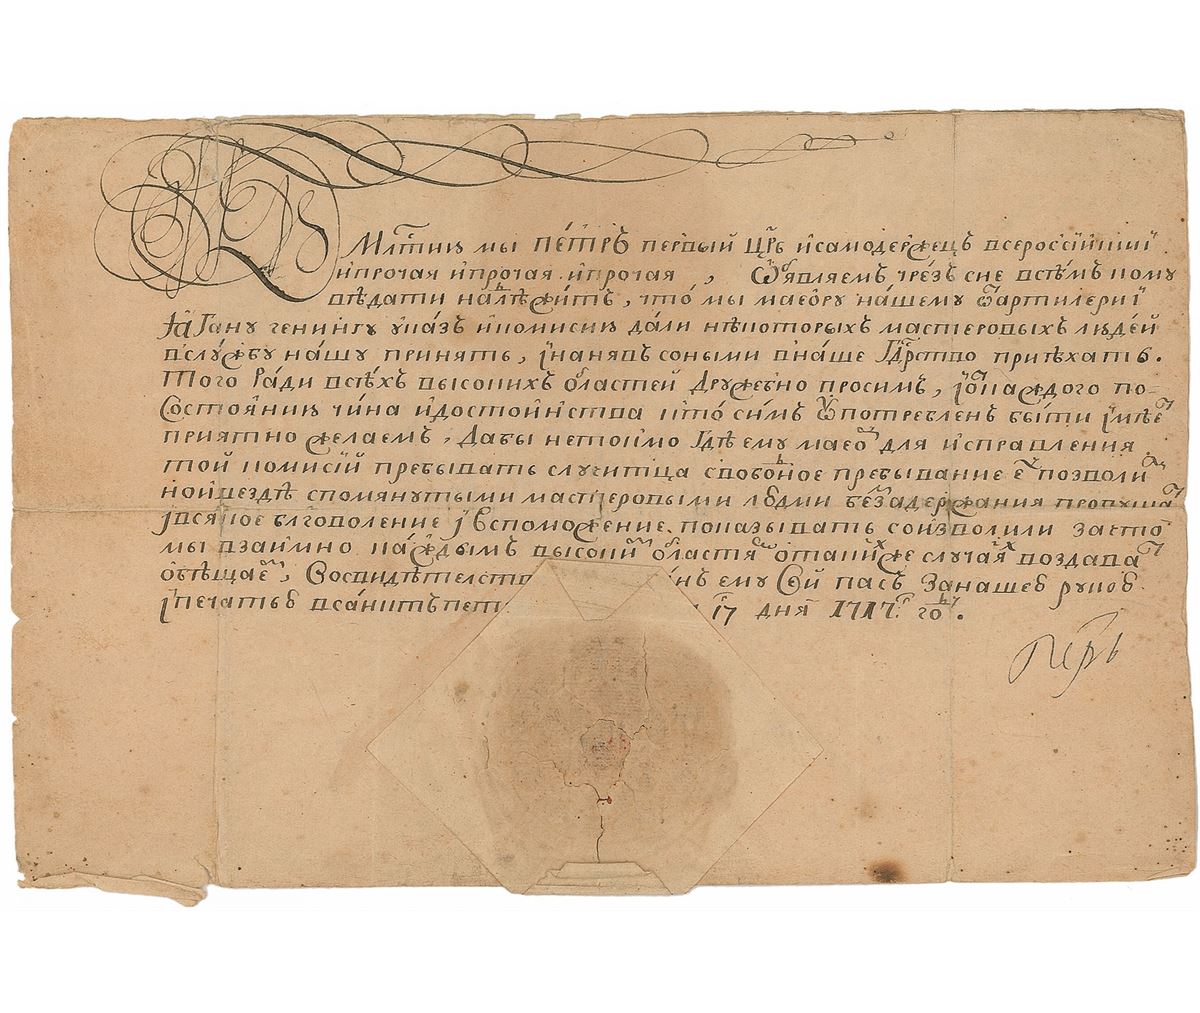 Б МЛСТИЮ МЫ ПЕТРЪ ПЕРВЫЙ ЦРЬ ИСАМОДЕРЖЕЦЪ ВСЕРОССИЙСКИЙ
ИПРОЧАЯ ИПРОЧАЯ ИПРОЧАЯ, ОБЯВЛЯЕМЪ ЧРЕЗЪ СИЕ ВСѢМЪ КОМУ
ВѢДАТИ НАДЛЕЖИТЪ, ЧТО МЫ МАЕОРУ НАШЕМУ ѾАРТИЛЕРИИ
ГЕНИНГУ УКАЗЪ ИКОМИСИЮ ДАЛИ НѢКОТОРЫХЪ МАСТЕРОВЫХЪ ЛЮДЕЙ
ВСЛУЖБУ НАШУ ПРИНЯТЬ, ИНАНЯВЪ СОНЫМИ ВНАШЕ ГДРСТВО ПРИѢХАТЬ.
ТОГО РАДИ ВСѢХЪ ВЫСОКИХЪ ОБЛАСТЕЙ ДРУЖЕБНО ПРОСИМЪ, КАЖДОГО ПО-
СОСТОЯНИЮ ЧИНА ИДОСТОИНСТВА КТО СИМЪ УПОТРЕБЛЕНЪ БЫТИ ИМѢЕТ
ПРИЯТНО ЖЕЛАЕМЪ, ДАБЫ НЕТОКМО ГДѢ ЕМУ МАЕОРУ ДЛЯ ИСПРАВЛЕНИЯ
ТОЙ КОМИСИЙ ПРЕБЫВАТЬ СЛУЧИТЦА СВОБОДНОЕ ПРЕБЫВАНИЕ ПОЗВОЛИТ
НОИВЕЗДѢ СПОМЯНУТЫМИ МАСТЕРОВЫМИ ЛЮДМИ БЕЗЗАДЕРЖАНИЯ ПРОПУЩАТ
ІВСЯКОЕ БЛГОВОЛЕНИЕ ІВСПОМОЖЕНИЕ ПОКАЗЫВАТЬ СОИЗВОЛИЛИ ЗАЧТО
МЫ ВЗАИМНО КАЖДЫМЪ ВЫСОКИМ ОБЛАСТЯМ ВТАКИХЖЕ СЛУЧАЯХ ВОЗДАВАТ
ОБѢЩАЕМ, ВОСВИДѢТЕЛСТВО ЕМУ СЕЙ ПАСЪ ЗАНАШЕЮ РУКОЮ
ІПЕЧАТЬЮ ВСАНКТЪПЕТ 17 ДНЯ 1717 ГОДУ.
Петръ